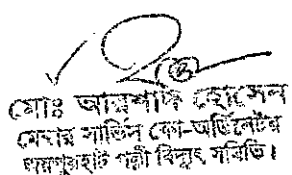 মোঃ আরশাদ হোসেন
মেম্বার সার্ভিস কো-অর্ডিনেটর
জয়পুরহাট পল্লী বিদ্যুৎ সমিতি।